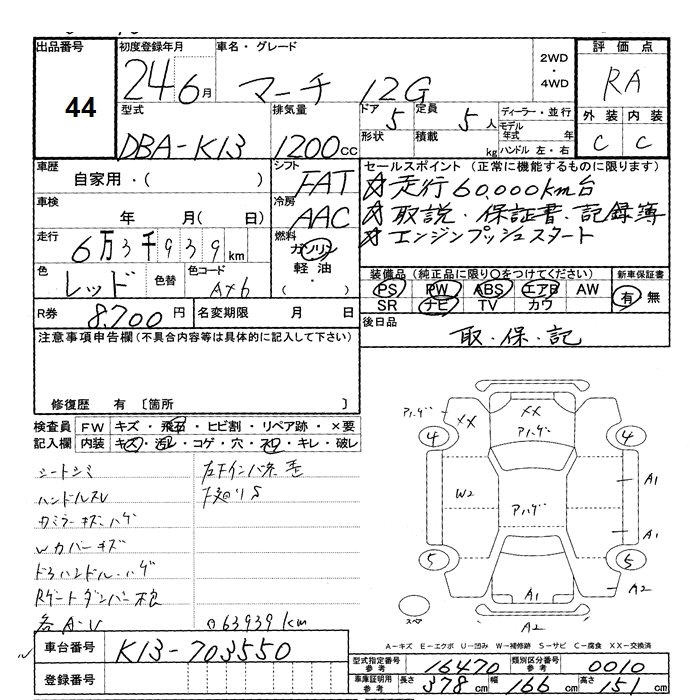 出品番号 初度登録年月 車名・グレード 2WD・4WD 評価点
44 24年6月 マーチ 12G RA
型式 排気量 ドア 5 定員 5人 ディーラー・並行 外装 内装
DBA-K13 1200cc 形状 積載 kg モデル年式 年 ハンドル 左・右 C C
車歴 自家用・( ) シフト FAT セールスポイント (正常に機能するものに限ります)
☆走行60,000km台
車検 年 月( 日) 冷房 AAC ☆取説・保証書・記録簿
走行 6万3千939km 燃料 ガソリン 軽油 ( ・ ) ☆エンジンプッシュスタート
色 レッド 色替 色コード AX6 装備品 (純正品に限り○をつけてください) 新車保証書
PS PW ABS エアB AW 有 無
SR ナビ TV カワ
R券 8,700円 名変期限 月 日 後日品
取・保・記
注意事項申告欄 (不具合内容等は具体的に記入して下さい)
修復歴 有 〔箇所 〕
検査員 FW キズ・飛石・ヒビ割・リペア跡・×要
記入欄 内装 キズ・汚レ・コゲ・穴・凹・キレ・破レ
シートシミ
ハンドルスレ 下廻りS
ウカバーキズ
Rゲートダンパー
各A・U 063939km
アハゲ XX XX アハゲ
4 4
W2 アハゲ A1
A1
5 5
A1 A2
スペア A2
A-キズ E-エクボ U-凹み W-補修跡 S-サビ C-腐食 XX-交換済
車台番号 K13-703550
登録番号
型式指定番号 参考 16470 類別区分番号 参考 0010
車庫証明用 参考 長さ 378cm 幅 166cm 高さ 151cm